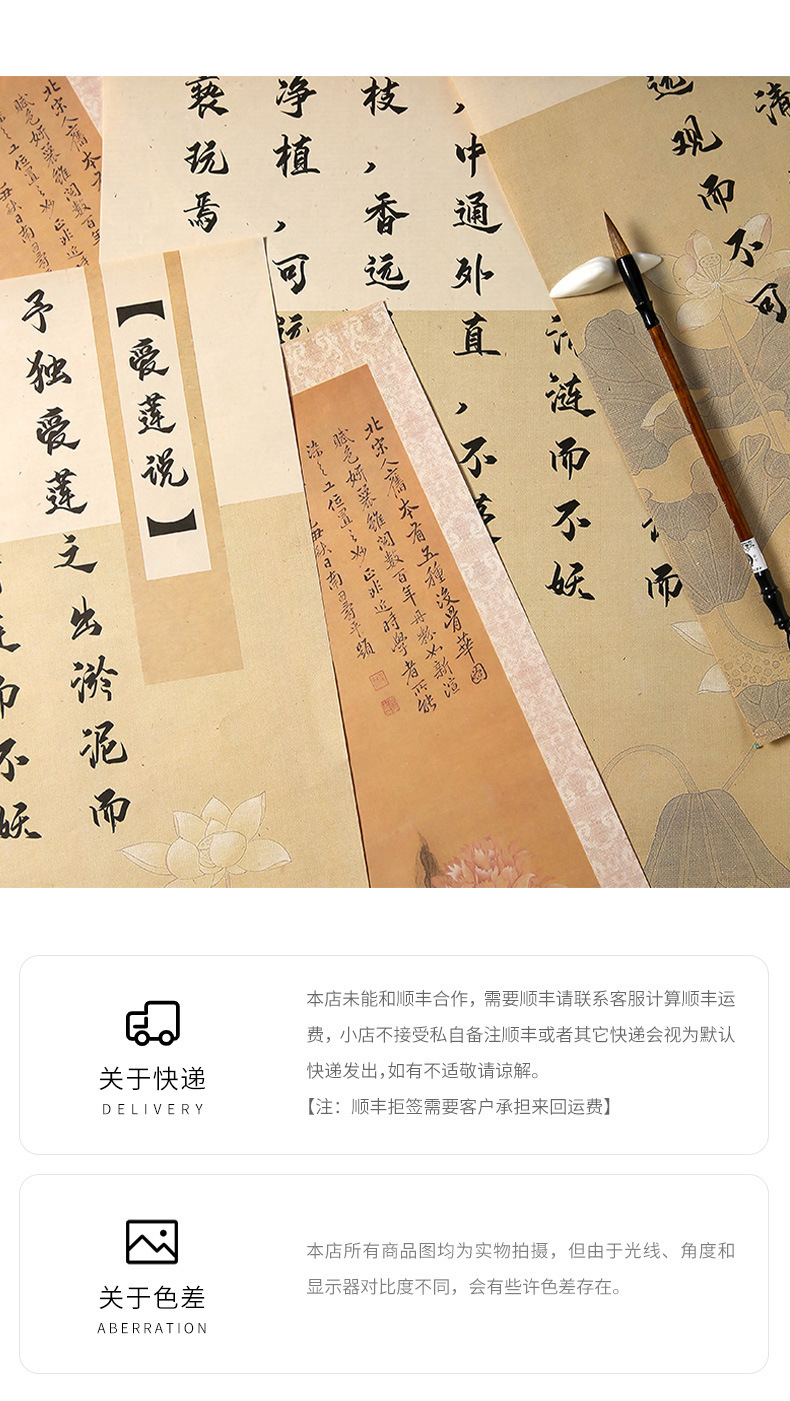 予独爱莲之出淤泥而
不妖
【爱莲说】
北宋人旧本
北宋人舊本有五種沒骨華圖
賦色妍
百年丹粉如新渲
位置之妙正非近時學者所能
亵玩焉
净植，可远
枝，香远
，中通外直，不蔓
涟而不妖
而
现而不可
清
关于快递
DELIVERY
本店未能和顺丰合作，需要顺丰请联系客服计算顺丰运
费，小店不接受私自备注顺丰或者其它快递会视为默认
快递发出，如有不适敬请谅解。
【注：顺丰拒签需要客户承担来回运费】
关于色差
ABERRATION
本店所有商品图均为实物拍摄，但由于光线、角度和
显示器对比度不同，会有些许色差存在。